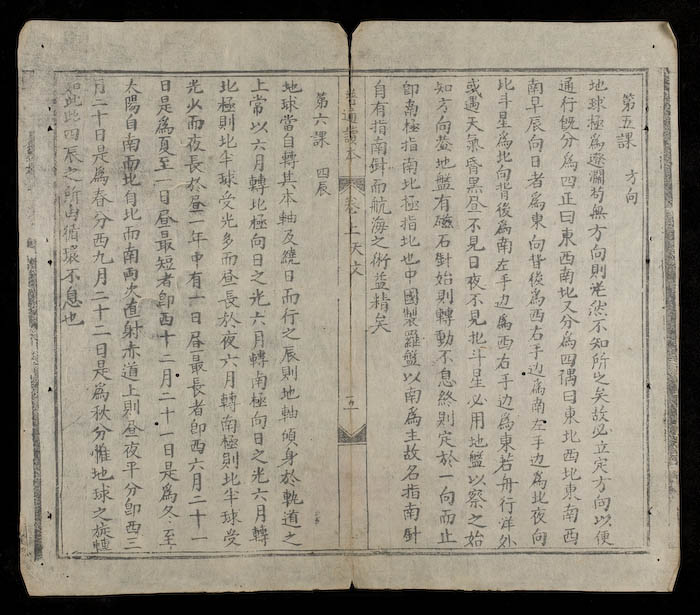 第五課 方向
地球極為遼濶茍無方向則茫然不知所之矣故必立定方向以便
通行旣分為四正曰東西南北又分為四隅曰東北西北東南西
南早辰向日者為東向背後為西右手边為南左手边為北夜向
北斗星為北向背後為南左手边為西右手边為東若舟行洋外
或遇天氣昏黒昼不見日夜不見北斗星必用地盤以察之始
知方向葢地盤有磁石針始則轉動不息終則定於一向而止
卽南極指南北極指北也中國製羅盤以南為主故名指南針
自有指南針而航海之術益精矣
普通讀本 卷上天文 五
第六課 四辰
地球當自轉其本軸及繞日而行之辰則地軸傾身於軌道之
上常以六月轉北極向日之光六月轉南極向日之光六月轉
北極則北半球受光多而昼長於夜六月轉南極則北半球受
光少而夜長於昼一年中有一日昼最長者卽西六月二十一
日是為夏至一日昼最短者卽西十二月二十一日是為冬至
太陽自南而北自北而南两次直射赤道上則昼夜平分卽西三
月二十日是為春分西九月二十二日是為秋分惟地球之旋轉
如此此四辰之所由循環不息也